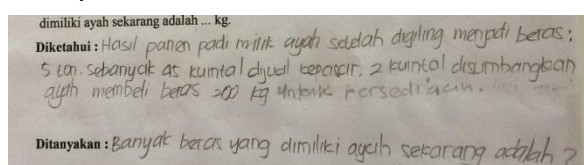 dimiliki ayah sekarang adalah ... kg.
Diketahui : Hasil panen padi milik ayah setelah digiling menjadi beras :
5 ton. Sebanyak 45 kuintal dijual kepasar, 2 kuintal disumbangkan
ayah membeli beras 200 kg untuk Persediaan.
Ditanyakan : Banyak beras yang dimiliki ayah sekarang adalah ?